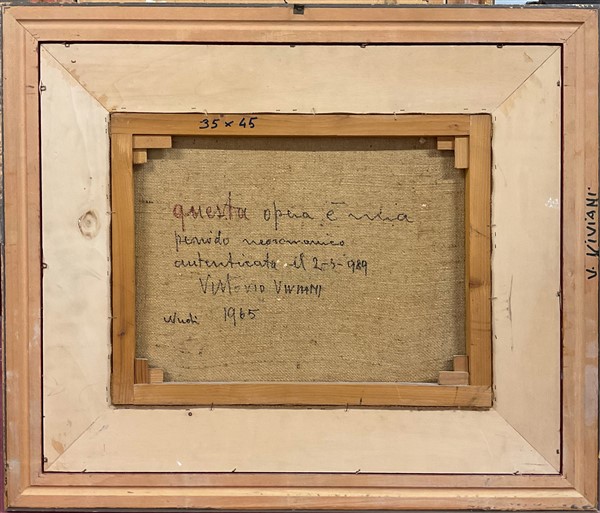 35 x 45
questa opera è mia
periodo neoromanico
autenticata il 2-3-989
Vittorio Viviani
Nudi 1965
V. VIVIANI